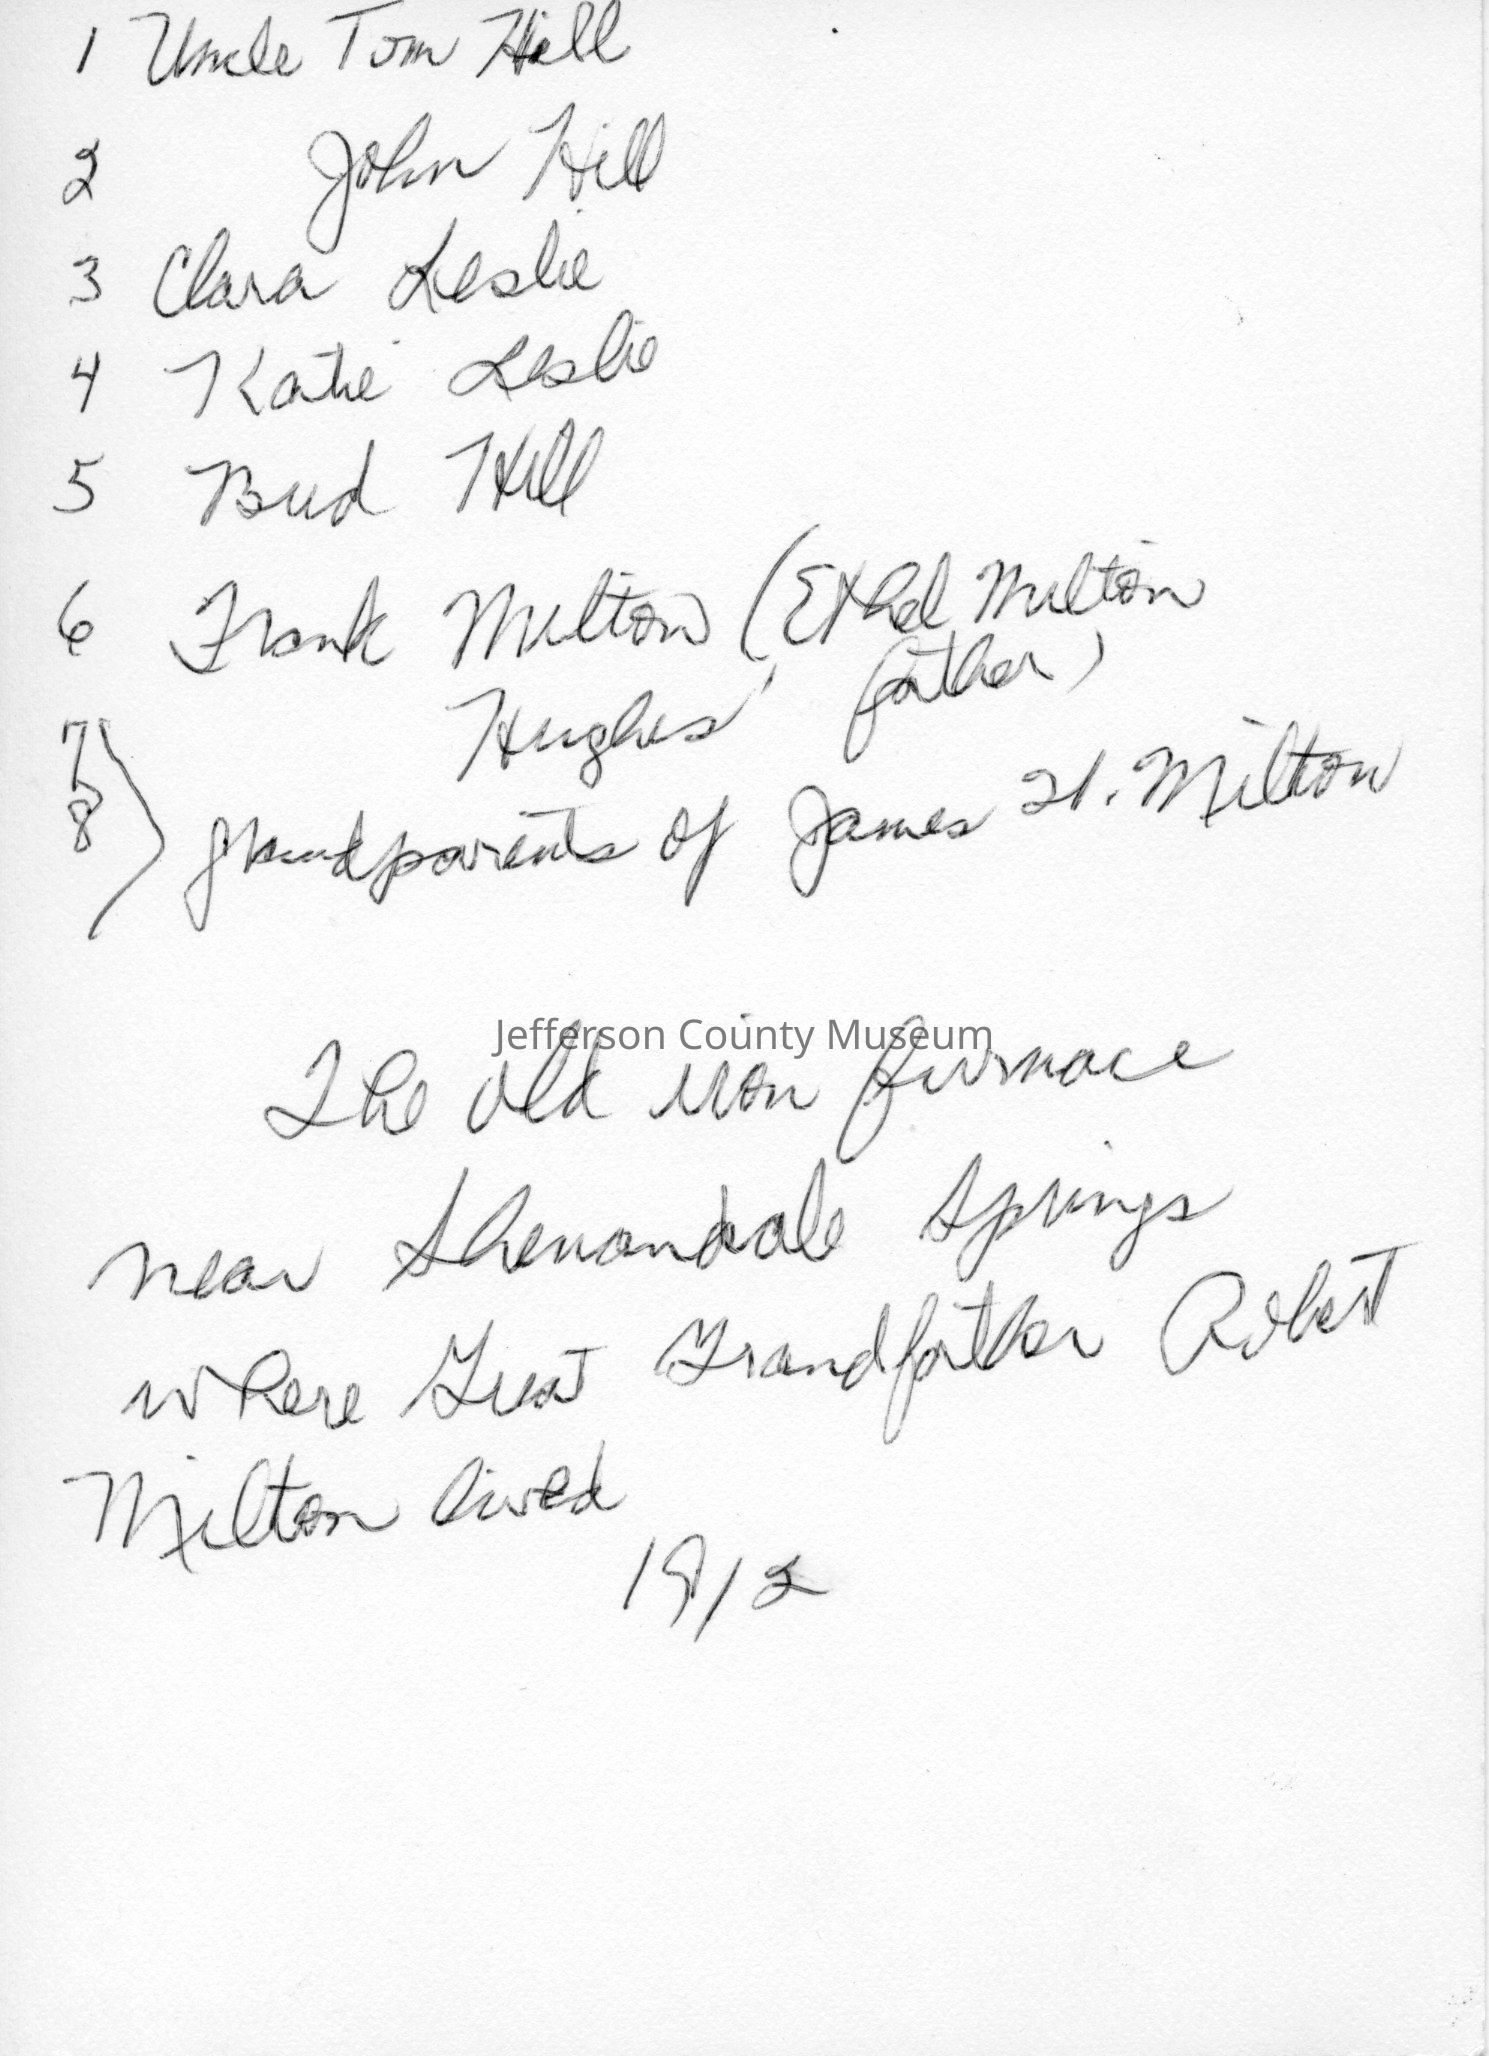 1 Uncle Tom Hill
2 John Hill
3 Clara Leslie
4 Katie Leslie
5 Bud Hill
6 Frank Milton (Ethel Milton
Hughes' father)
7
8 } grandparents of James H. Milton
Jefferson County Museum
The old iron furnace
near Shenandale Springs
where Great Grandfather Robert
Milton lived
1912